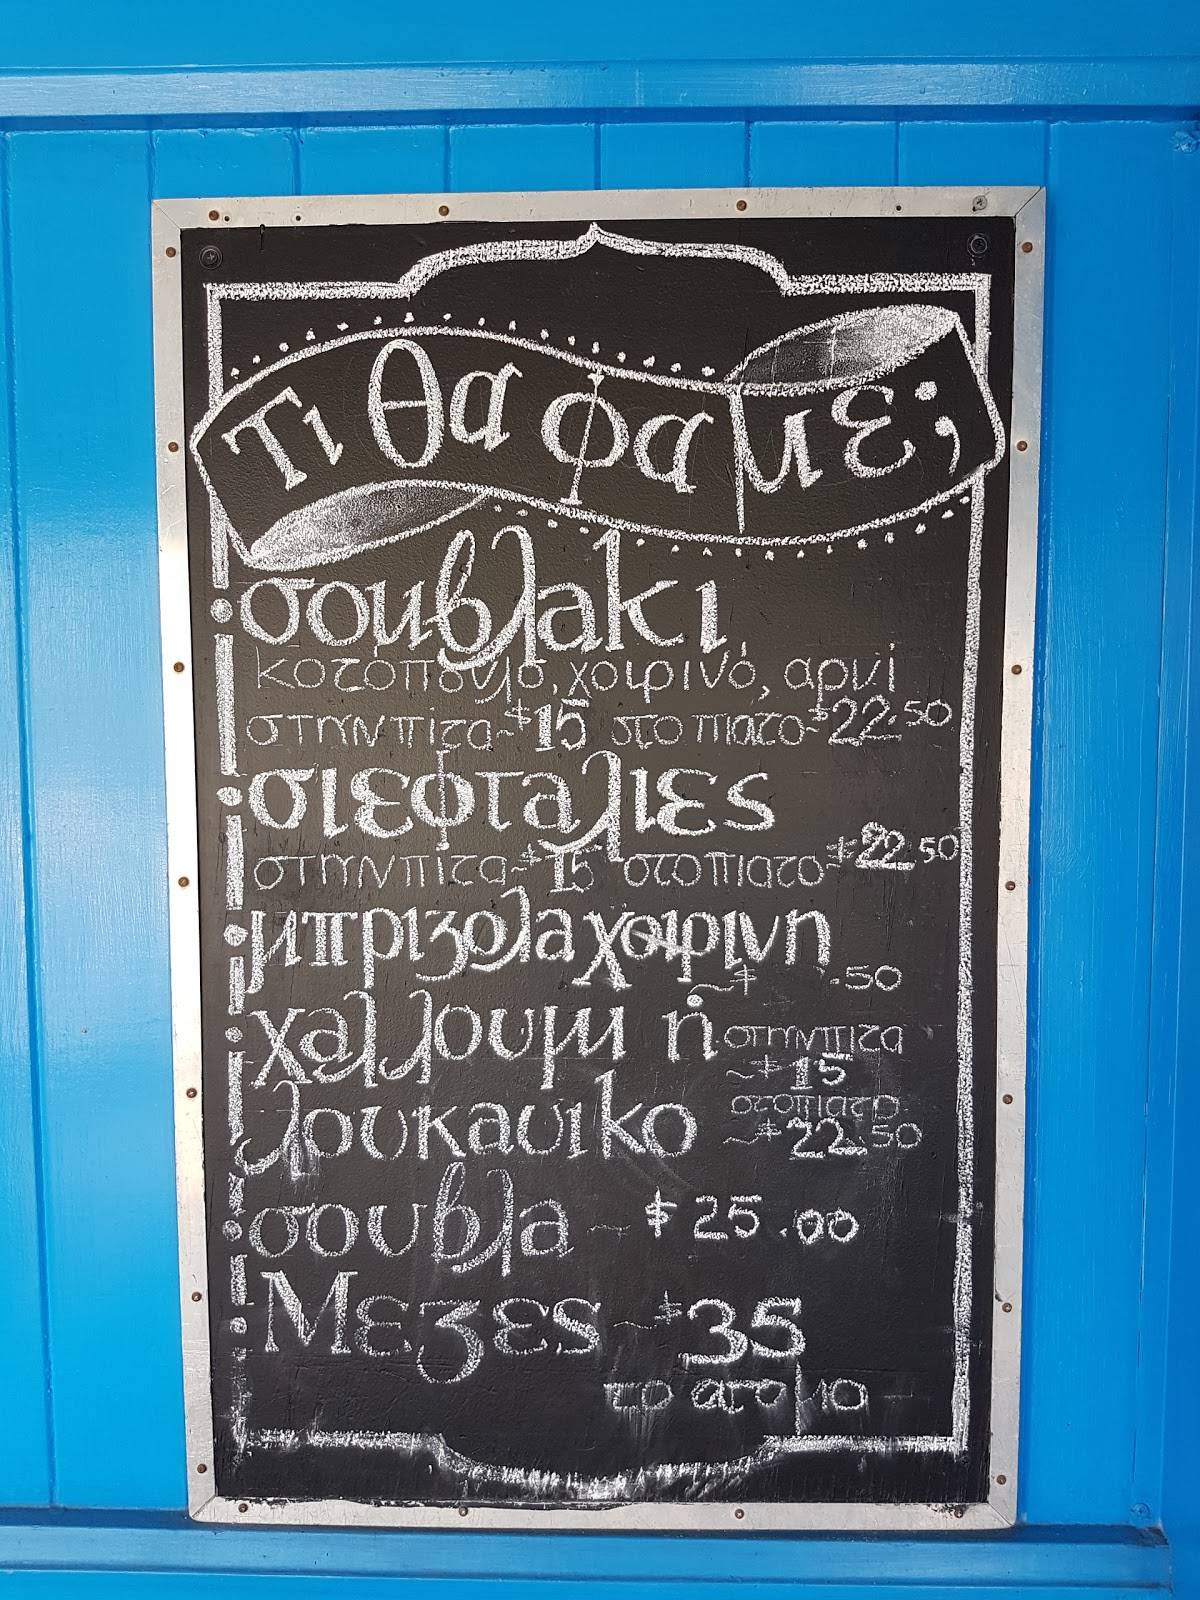 Τι θα φα με;
σουβλακι
κοτοπουλο, χοιρινό, αρνί
στην πιτα ~ $15 στο πιατο ~ $22.50
σιεφταλιες
στην πιτα ~ $15 στο πιατο ~ $22.50
μπριζολα χοιρινη
~ $ .50
χαλλουμι ή στην πιτα
~ $15
λουκανικο στο πιατο
~ $22.50
σουβλα ~ $25.00
Μεζες ~ $35
το ατομο